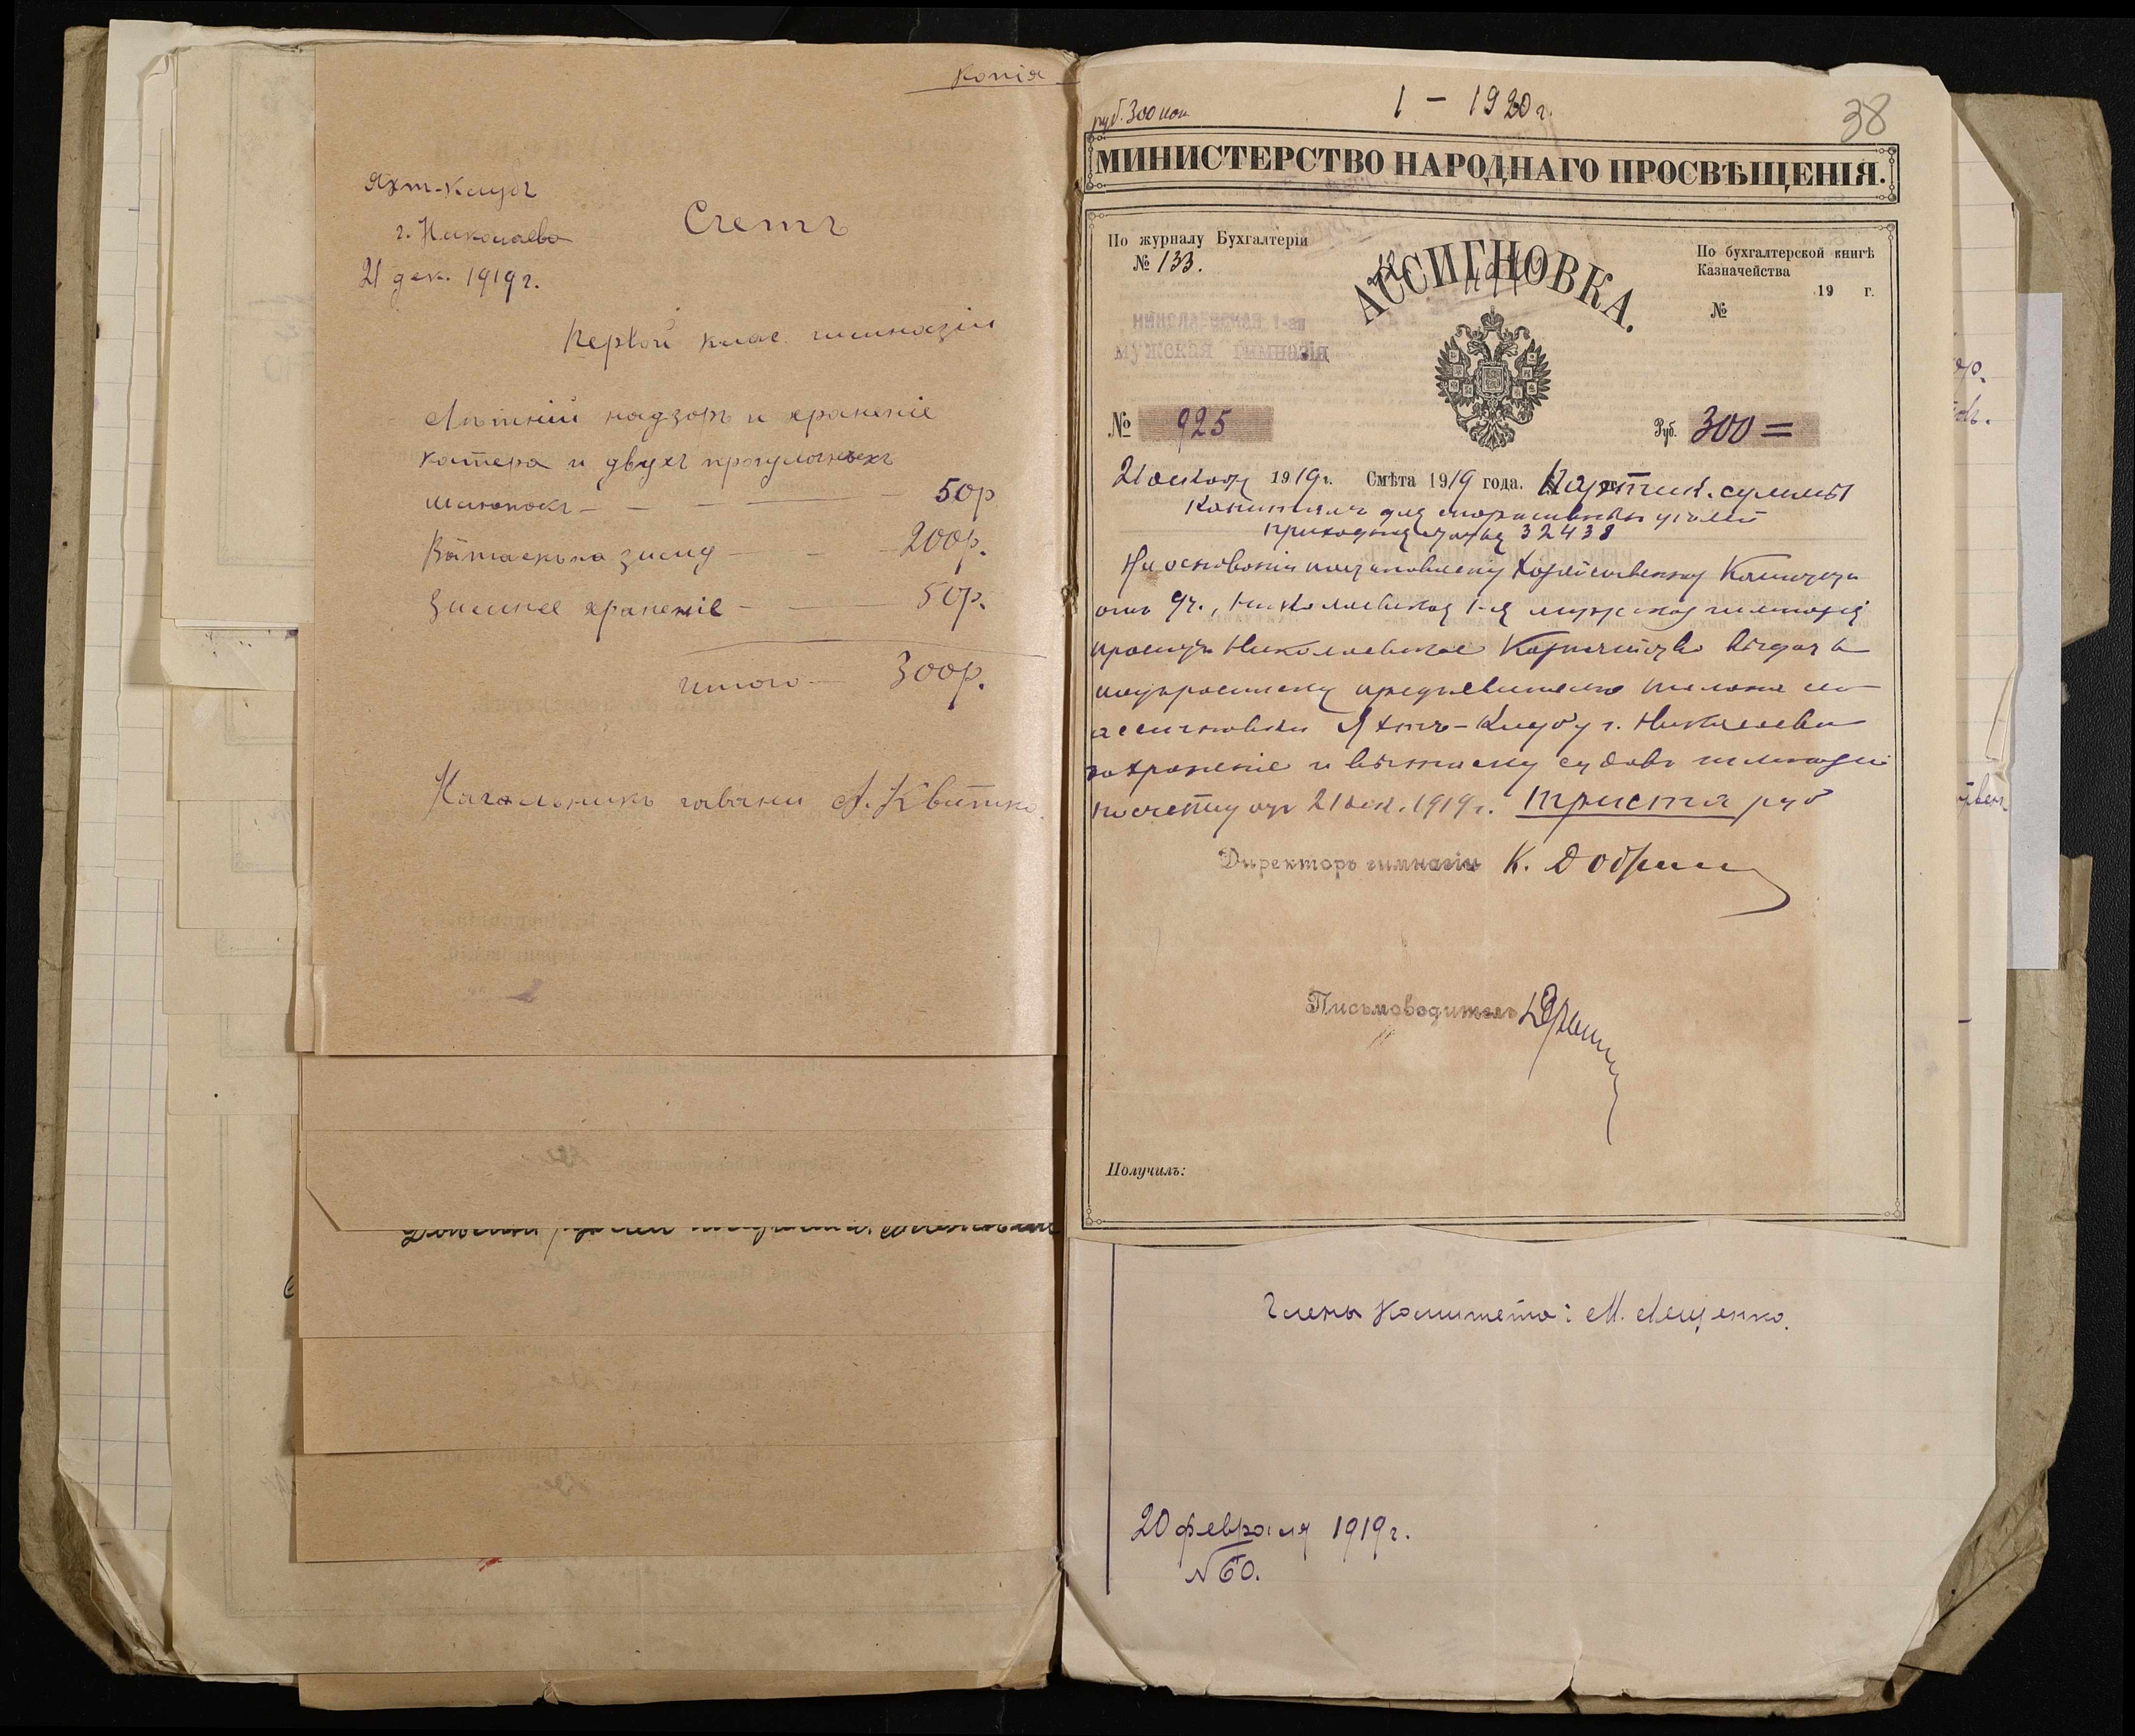 Копія
Яхт-Клубъ
г. Николаева
21 дек. 1919 г.
Счетъ
Первой клас. гимназіи
Лѣтній надзоръ и храненіе
катера и двухъ прогулочныхъ
шлюпокъ - 50р
Вытаска на зиму - 200р.
Зимнее храненіе - 50р.
Итого - 300р.
Начальникъ гавани А. Квитко.
руб. 300 коп
1 - 1920 г.
38
МИНИСТЕРСТВО НАРОДНАГО ПРОСВѢЩЕНІЯ.
По журналу Бухгалтеріи
№ 133.
АССИГНОВКА.
По бухгалтерской книгѣ
Казначейства
19 г.
№
николаевская 1-ая
мужская гимназія
№ 925
Руб. 300 =
21 1919 г. Смѣта 1919 года. суммы
Капиталъ для
32438
На основаніи Хозяйственнаго Комитета
отъ 9г., Николаевская 1-я мужская гимназія
проситъ Николаевское Казначейство выдать
предъявителю талона
ассигновки Яхтъ-Клубу г. Николаева
за храненіе и вытаску судовъ гимназіи
по счету отъ 21 дек. 1919 г. триста руб
Директоръ гимназіи К.
Письмоводитель
Получилъ:
Члены Комитета: М. Лещенко.
20 февраля 1919 г.
№ 60.